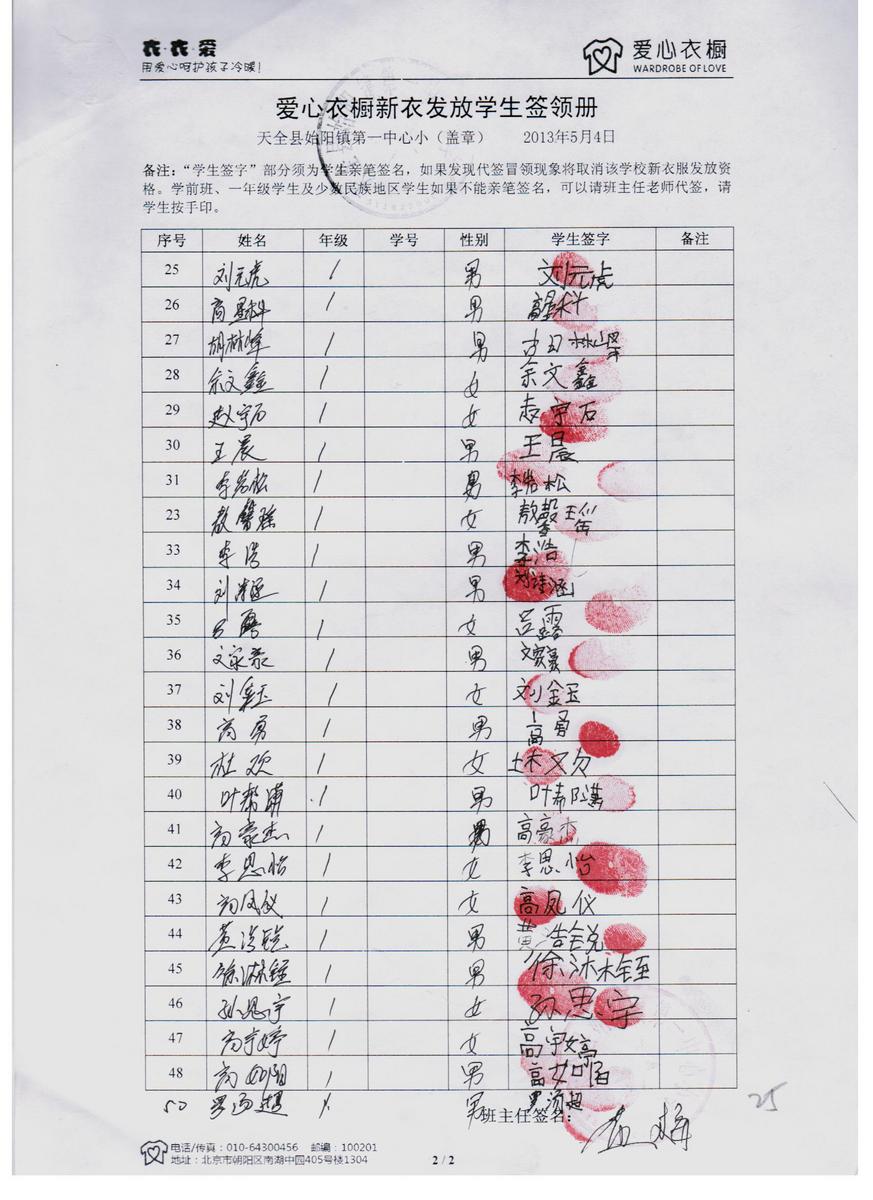 衣·衣·爱
用爱心呵护孩子冷暖!
爱心衣橱
WARDROBE OF LOVE
爱心衣橱新衣发放学生签领册
天全县始阳镇第一中心小（盖章） 2013年5月4日
备注：“学生签字”部分须为学生亲笔签名，如果发现代签冒领现象将取消该学校新衣服发放资
格。学前班、一年级学生及少数民族地区学生如果不能亲笔签名，可以请班主任老师代签，请
学生按手印。
序号 姓名 年级 学号 性别 学生签字 备注
25 刘元虎 1 男 刘元虎
26 高星科 1 男 高星科
27 胡林峰 1 男 胡林峰
28 余文鑫 1 女 余文鑫
29 赵宇石 1 女 赵宇石
30 王晨 1 男 王晨
31 李岩松 1 男 李岩松
23 敖馨瑶 1 女 敖馨瑶
33 李浩 1 男 李浩
34 刘 1 男 刘诗涵
35 吕露 1 女 吕露
36 文家豪 1 男 文家豪
37 刘金玉 1 女 刘金玉
38 高勇 1 男 高勇
39 杜欢 1 女 杜欢
40 叶帮 1 男 叶
41 高豪杰 1 男 高豪杰
42 李思怡 1 女 李思怡
43 高凤仪 1 女 高凤仪
44 黄浩锐 1 男 黄浩锐
45 徐沐铚 1 男 徐沐铚
46 孙思宇 1 女 孙思宇
47 高宇婷 1 女 高宇婷
48 高如阳 1 男 高如阳
50 罗汤超 1 男 罗汤超
班主任签名：
25
电话/传真：010-64300456 邮编：100201
地址：北京市朝阳区南湖中园405号楼1304
2 / 2